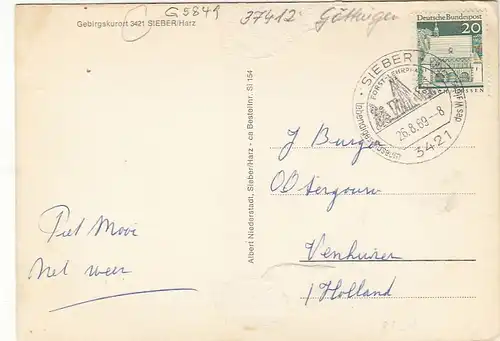 Gebirgskurort 3421 SIEBER/Harz
G 5849
37412 Göttingen
Deutsche Bundespost
20
SIEBER
26.8.69-8
3421
Albert Niederstadt, Sieber/Harz - ca Bestellnr. SI 154
J Burger
Venhuizen
/ Holland
Piet Mooi
weer